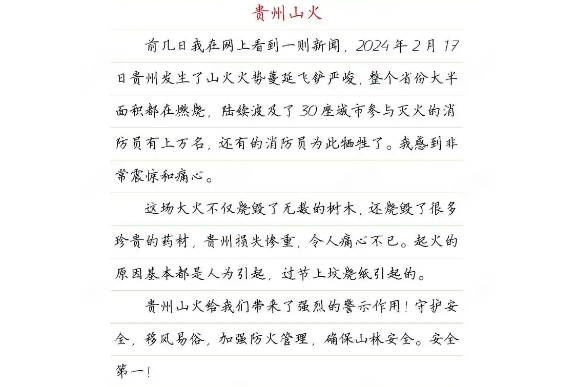 贵州山火
前几日我在网上看到一则新闻，2024年2月17
日贵州发生了山火火势蔓延飞铲严峻，整个省份大半
面积都在燃烧，陆续波及了30座城市参与灭火的消
防员有上万名，还有的消防员为此牺牲了。我感到非
常震惊和痛心。
这场大火不仅烧毁了无数的树木，还烧毁了很多
珍贵的药材，贵州损失惨重，令人痛心不已。起火的
原因基本都是人为引起，过节上坟烧纸引起的。
贵州山火给我们带来了强烈的警示作用！守护安
全，移风易俗，加强防火管理，确保山林安全。安全
第一！